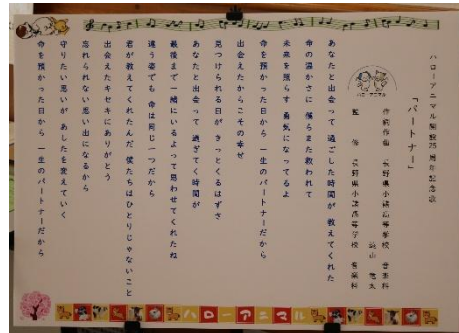 ハローアニマル開設25周年記念歌
「パートナー」
作詞作曲 長野県小諸高等学校 音楽科
監修 長野県小諸高等学校 音楽科
ハローアニマル
あなたと出会って 過ごした時間が 教えてくれた
命の温かさに 僕らまた救われて
未来を照らす 勇気になってるよ
命を預かった日から 一生のパートナーだから
出会えたからこその幸せ
見つけられる日が きっとくるはずさ
あなたと出会って 過ぎてく時間が
最後まで一緒にいるよって思わせてくれたね
違う姿でも 命は同じ一つだから
君が教えてくれたんだ 僕たちはひとりじゃないこと
出会えたキセキにありがとう
忘れられない思い出になるから
守りたい思いが あしたを変えていく
命を預かった日から 一生のパートナーだから
ハローアニマル